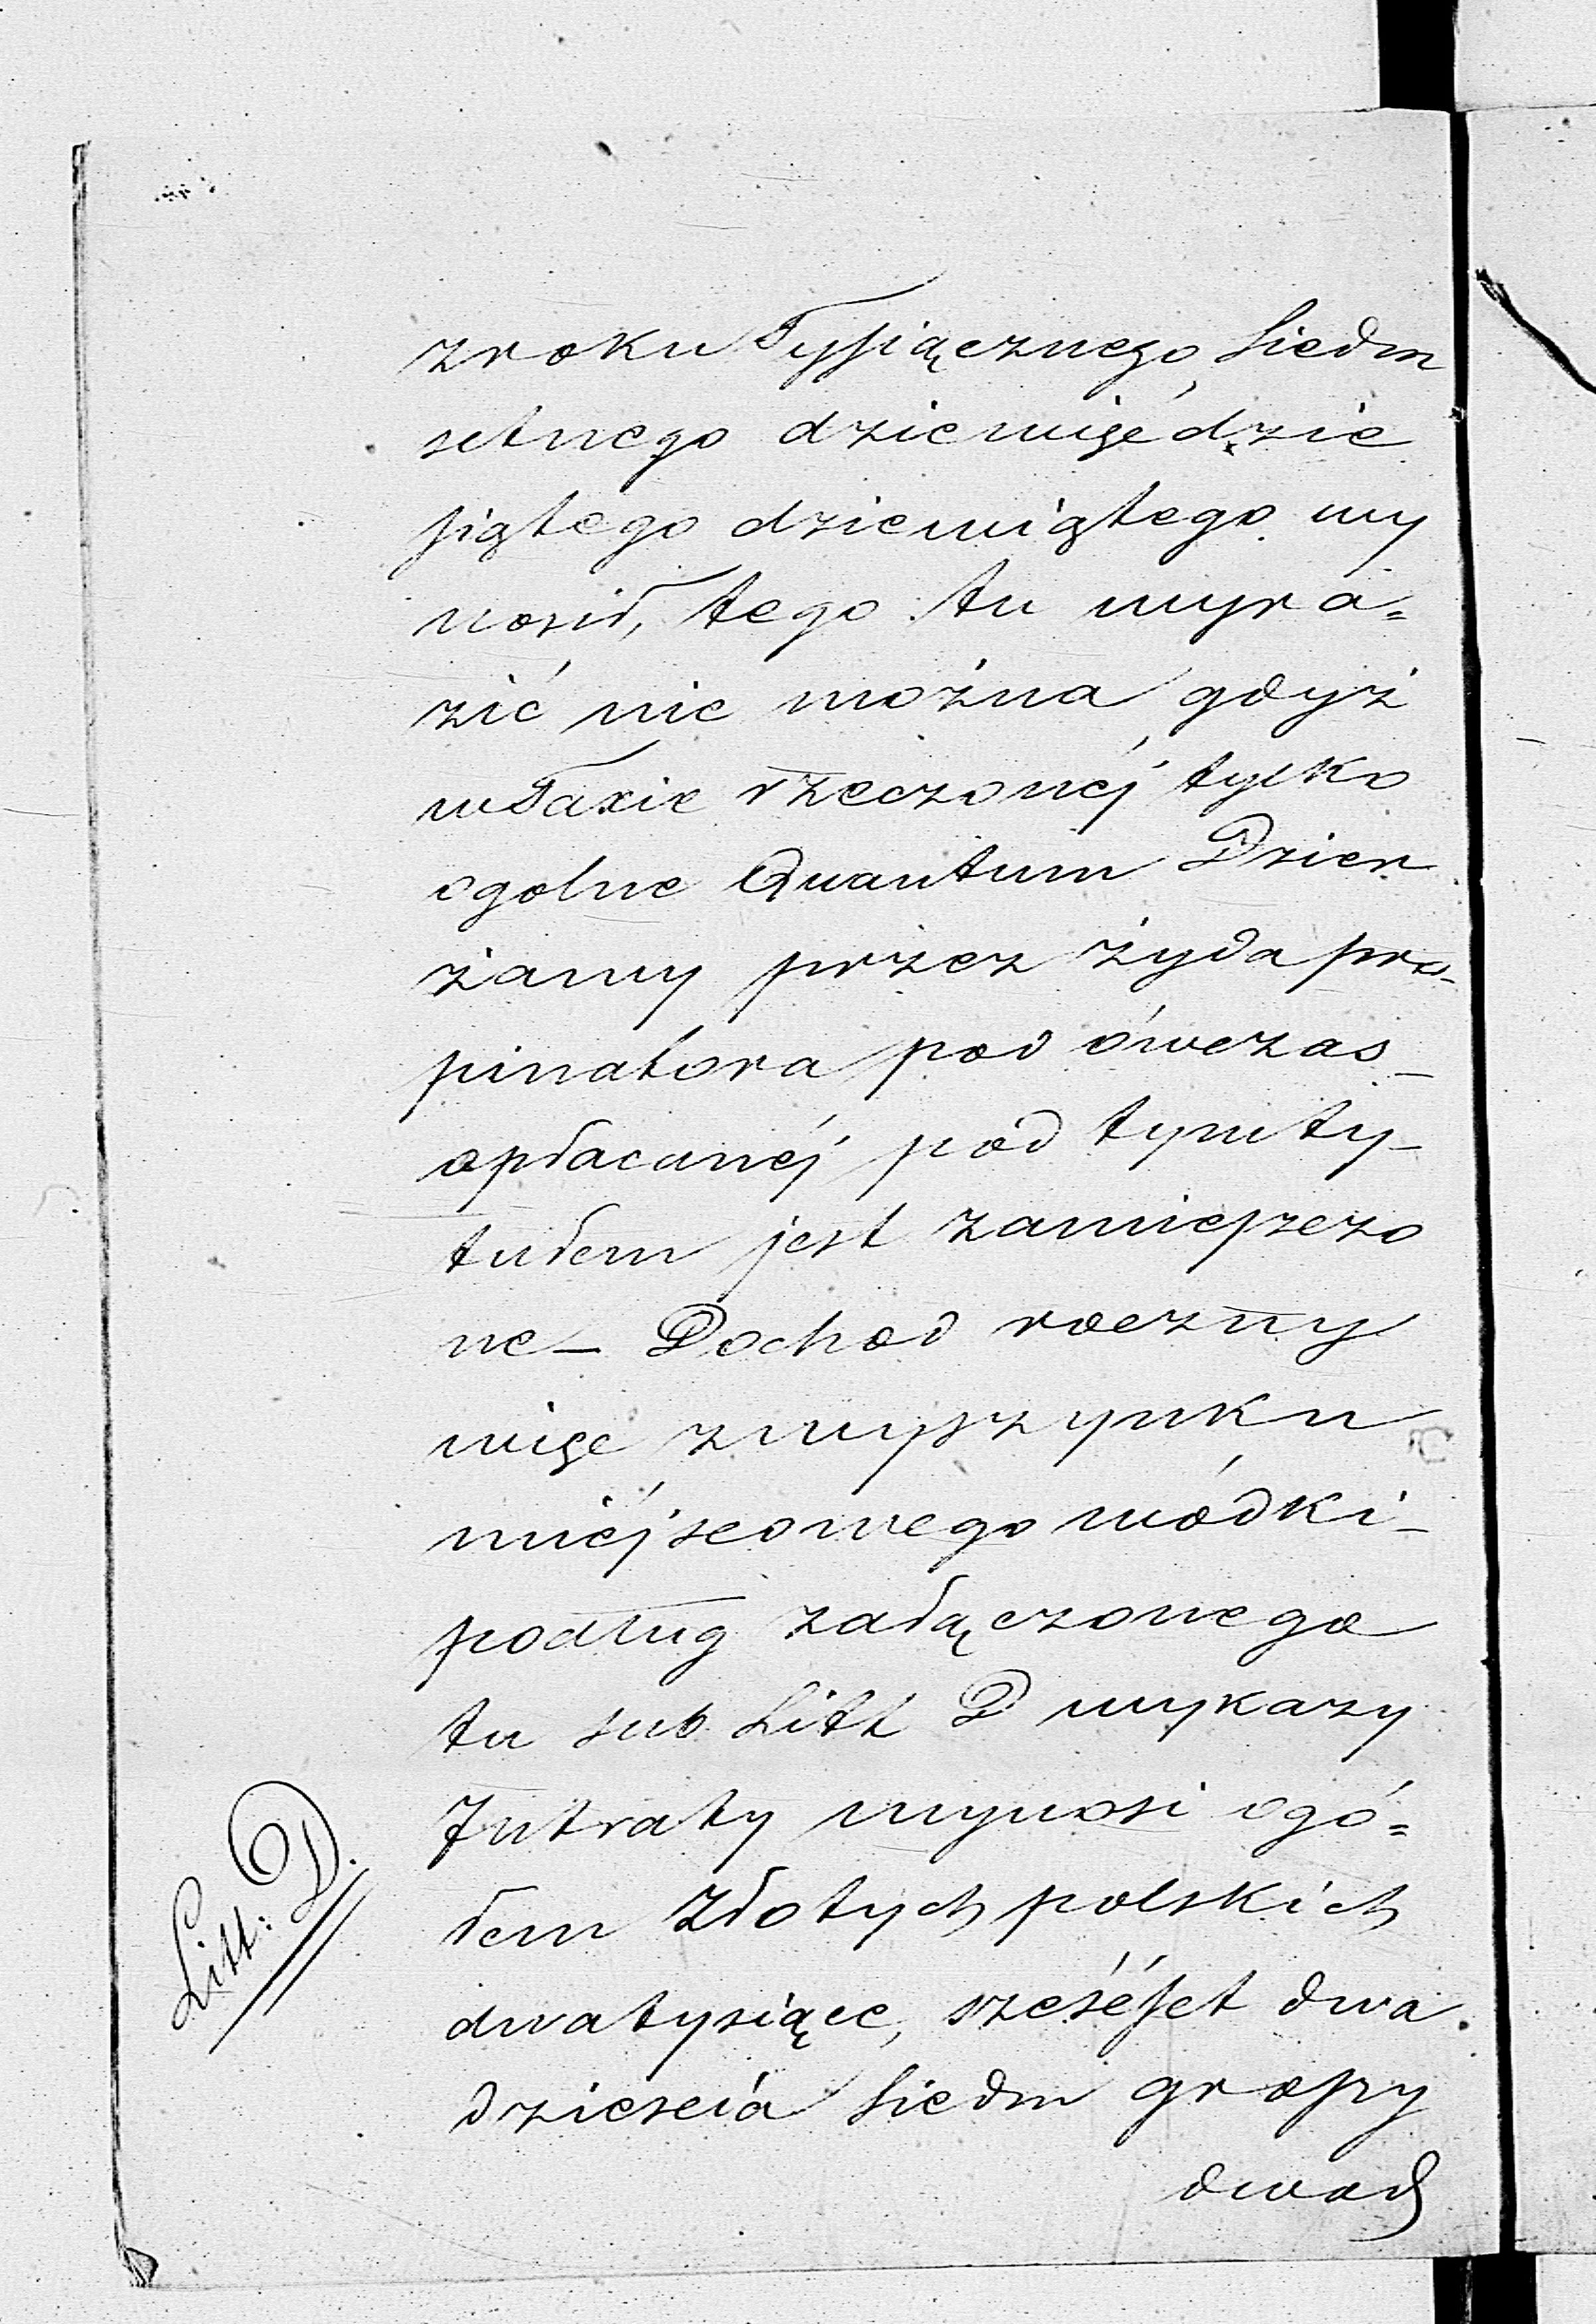 z roku Tysiącznego Siedm
setnego dziewięćdzie
siątego dziewiątego wy
nosił, tego tu wyra=
zić nie można gdyż
w Taxie rzeczonéj tylko
ogolne Quantum Dzier
żawy przez żyda pro-
pinatora pod ówczas-
opłacanéj pod tym ty-
tułem jest zamieszczo
ne – Dochod roczny
więc z wyszynku
miéjscowego wódki-
podług załączonego
tu sub Litt D wykazy
Intraty wynosi ogó=
łem Złotych polskich
dwa tysiące, sześćset dwa
dzieścia Siedm groszy
dwad
Litt: D.